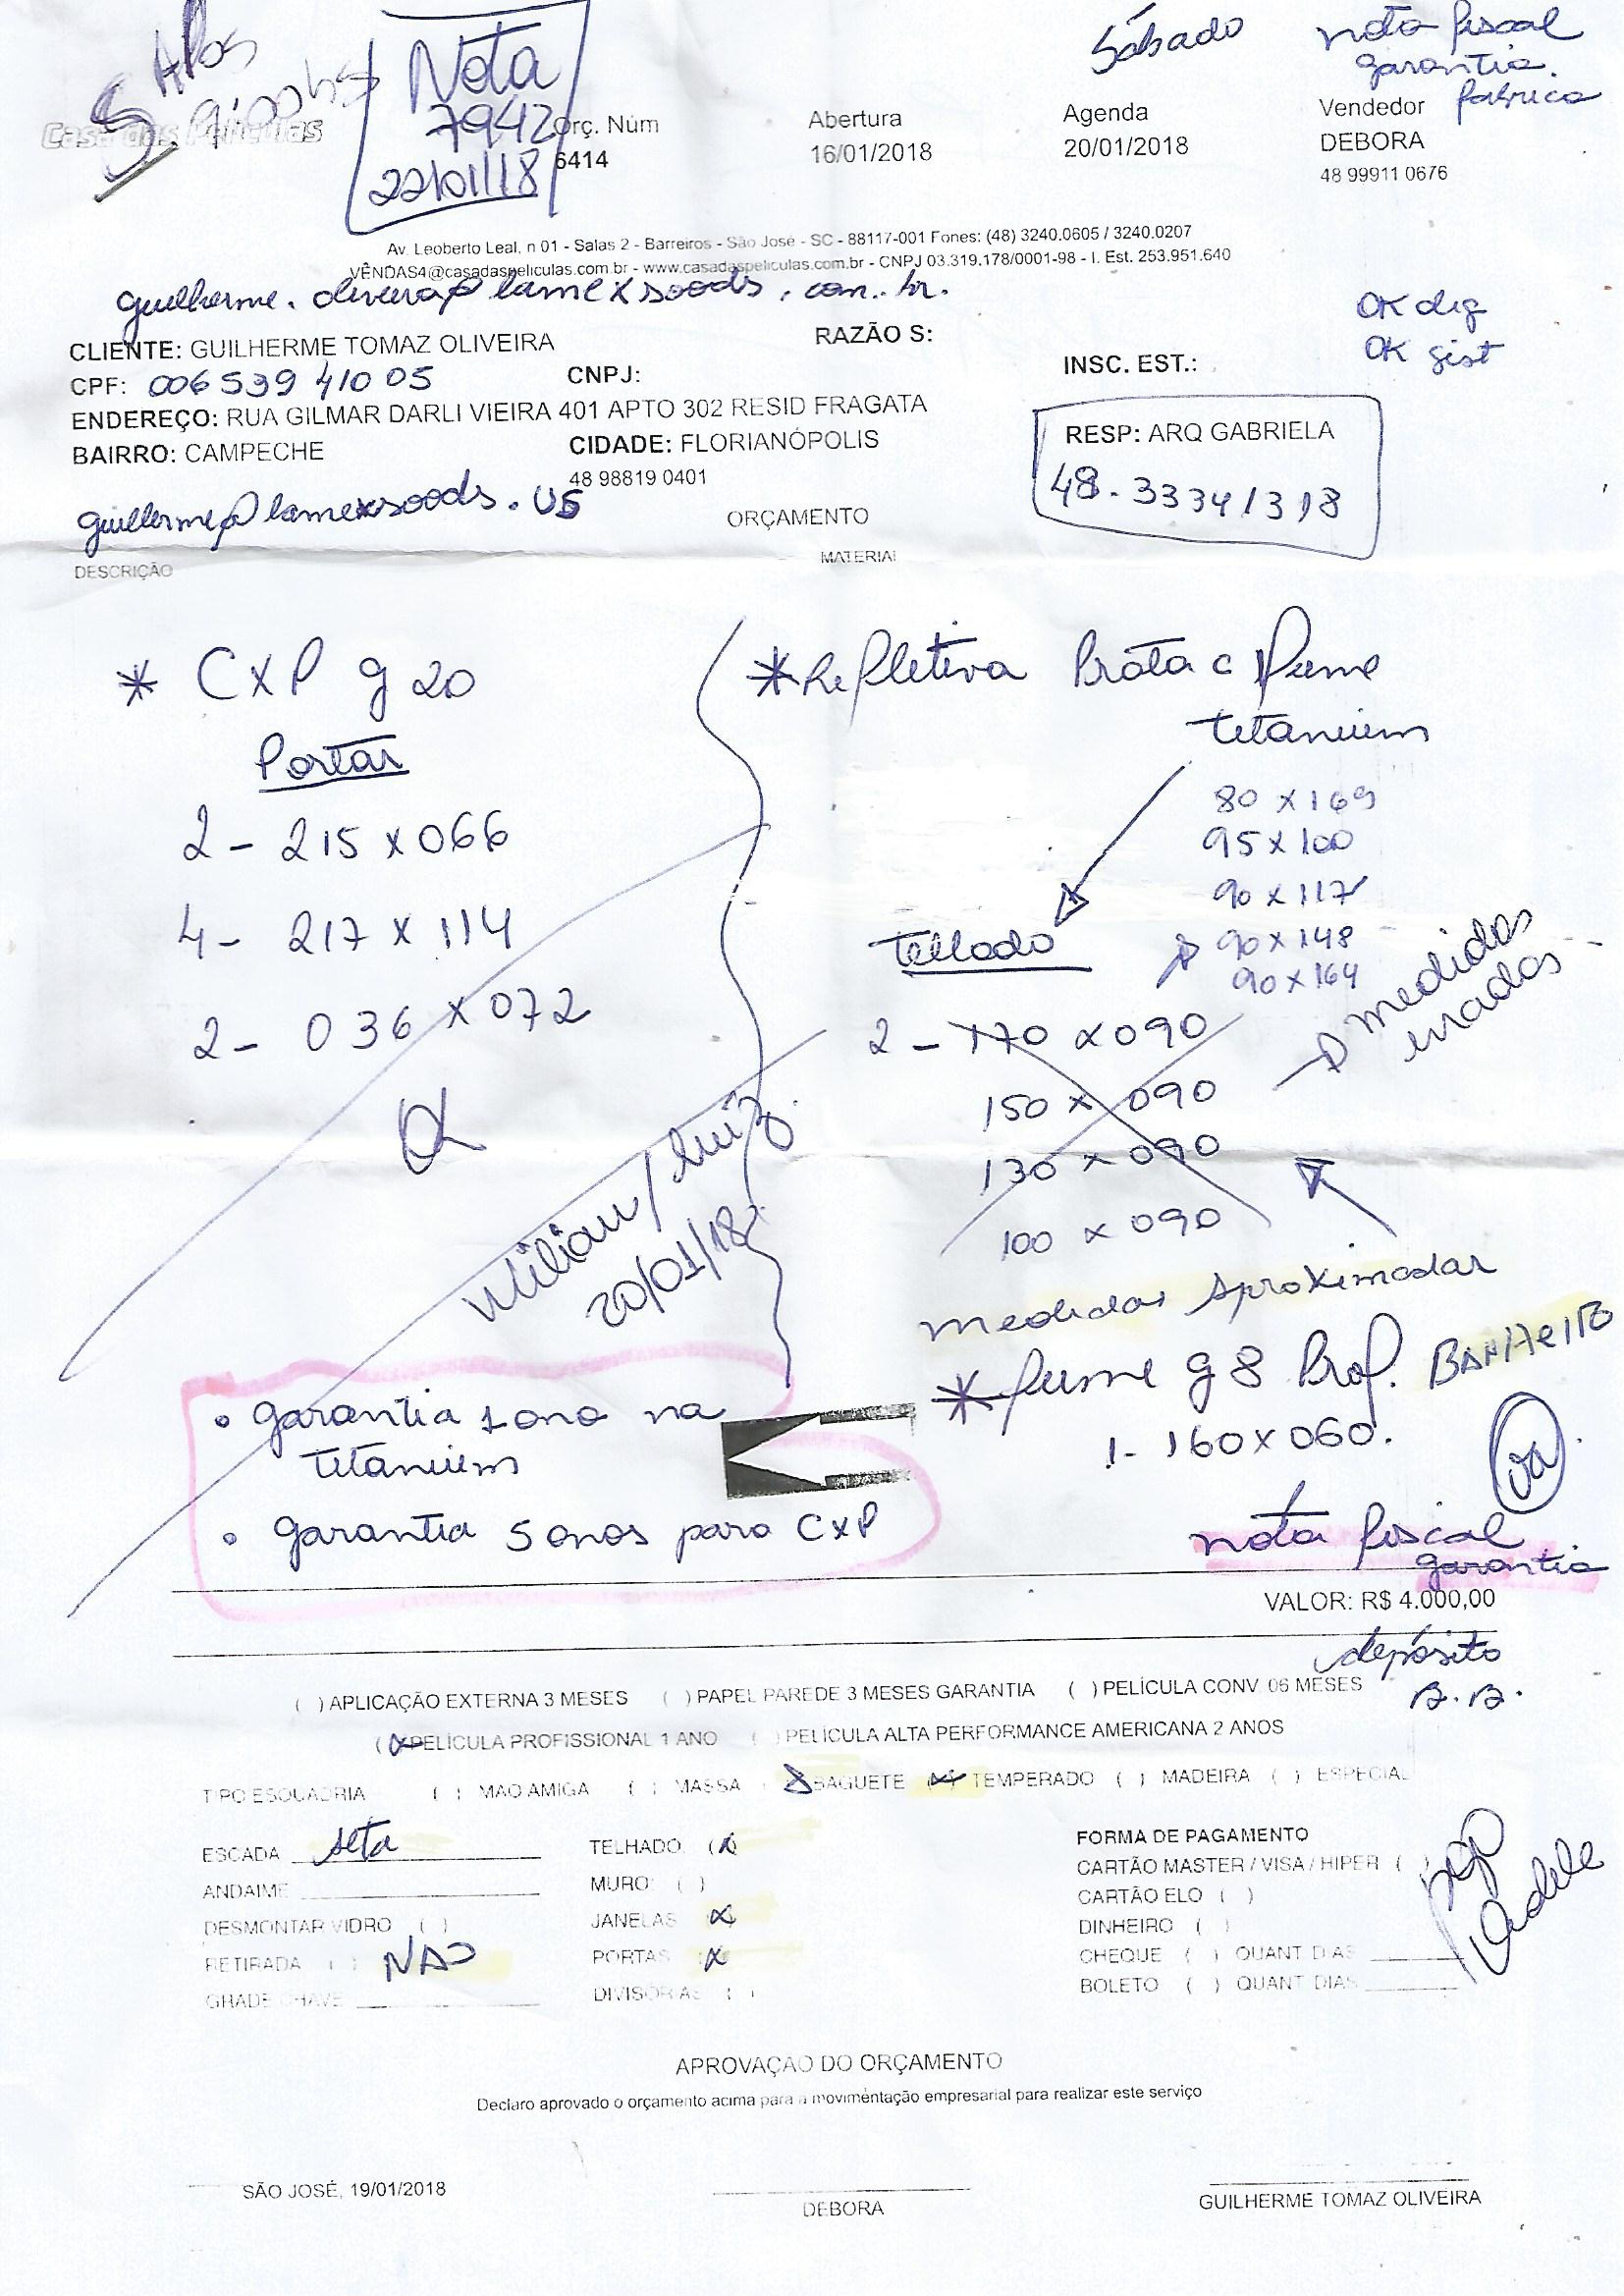 5
Após
Casa das Películas
Nota
7942
22/01/18
Orç. Núm
6414
Abertura
16/01/2018
Sábado
Agenda
20/01/2018
nota fiscal
garantia
fabrica
Vendedor
DEBORA
48 99911 0676
Av. Leoberto Leal, n 01 - Salas 2 - Barreiros - São José - SC - 88117-001 Fones: (48) 3240.0605 / 3240.0207
VENDAS4@casadaspeliculas.com.br - www.casadaspeliculas.com.br - CNPJ 03.319.178/0001-98 - I. Est. 253.951.640
guilherme.oliveira@lamexsoods.com.br.
OK dig
OK gist
CLIENTE: GUILHERME TOMAZ OLIVEIRA RAZÃO S:
CPF: 006 539 410 05 CNPJ: INSC. EST.:
ENDEREÇO: RUA GILMAR DARLI VIEIRA 401 APTO 302 RESID FRAGATA
BAIRRO: CAMPECHE CIDADE: FLORIANÓPOLIS
48 98819 0401
RESP: ARQ GABRIELA
48-33341318
guilherme@lamexsoods.us
ORÇAMENTO
DESCRIÇÃO MATERIAL
* CXP g 20
Portas
2 - 215 x 066
4 - 217 x 114
2 - 036 x 072
Wilian/Luiz
20/01/18
* Refletiva Prata c fume
titanium
80 x 169
95 x 100
90 x 117
90 x 148
90 x 164
telhado
medidas
erradas
2 - 170 x 090
150 x 090
130 x 090
100 x 090
medidas Aproximadas
* fume g 8 Prof. BANHEIRO
1 - 160 x 060.
• garantia 1 ano na
titanium
• garantia 5 anos para CXP
nota fiscal
garantia
VALOR: R$ 4.000,00
depósito
B.B.
( ) APLICAÇÃO EXTERNA 3 MESES ( ) PAPEL PAREDE 3 MESES GARANTIA ( ) PELÍCULA CONV 06 MESES
(X) PELÍCULA PROFISSIONAL 1 ANO ( ) PELÍCULA ALTA PERFORMANCE AMERICANA 2 ANOS
TIPO ESQUADRIA ( ) MAO AMIGA ( ) MASSA (X) BAGUETE (X) TEMPERADO ( ) MADEIRA ( ) ESPECIAL
ESCADA seta
ANDAIME
DESMONTAR VIDRO ( )
RETIRADA ( ) NAO
GRADE CHAVE
TELHADO (X)
MURO ( )
JANELAS (X)
PORTAS (X)
DIVISORIAS ( )
FORMA DE PAGAMENTO
CARTÃO MASTER / VISA / HIPER ( )
CARTÃO ELO ( )
DINHEIRO ( )
CHEQUE ( ) QUANT DIAS
BOLETO ( ) QUANT DIAS
pago
APROVAÇAO DO ORÇAMENTO
Declaro aprovado o orçamento acima para a movimentação empresarial para realizar este serviço
SÃO JOSÉ, 19/01/2018
DEBORA
GUILHERME TOMAZ OLIVEIRA